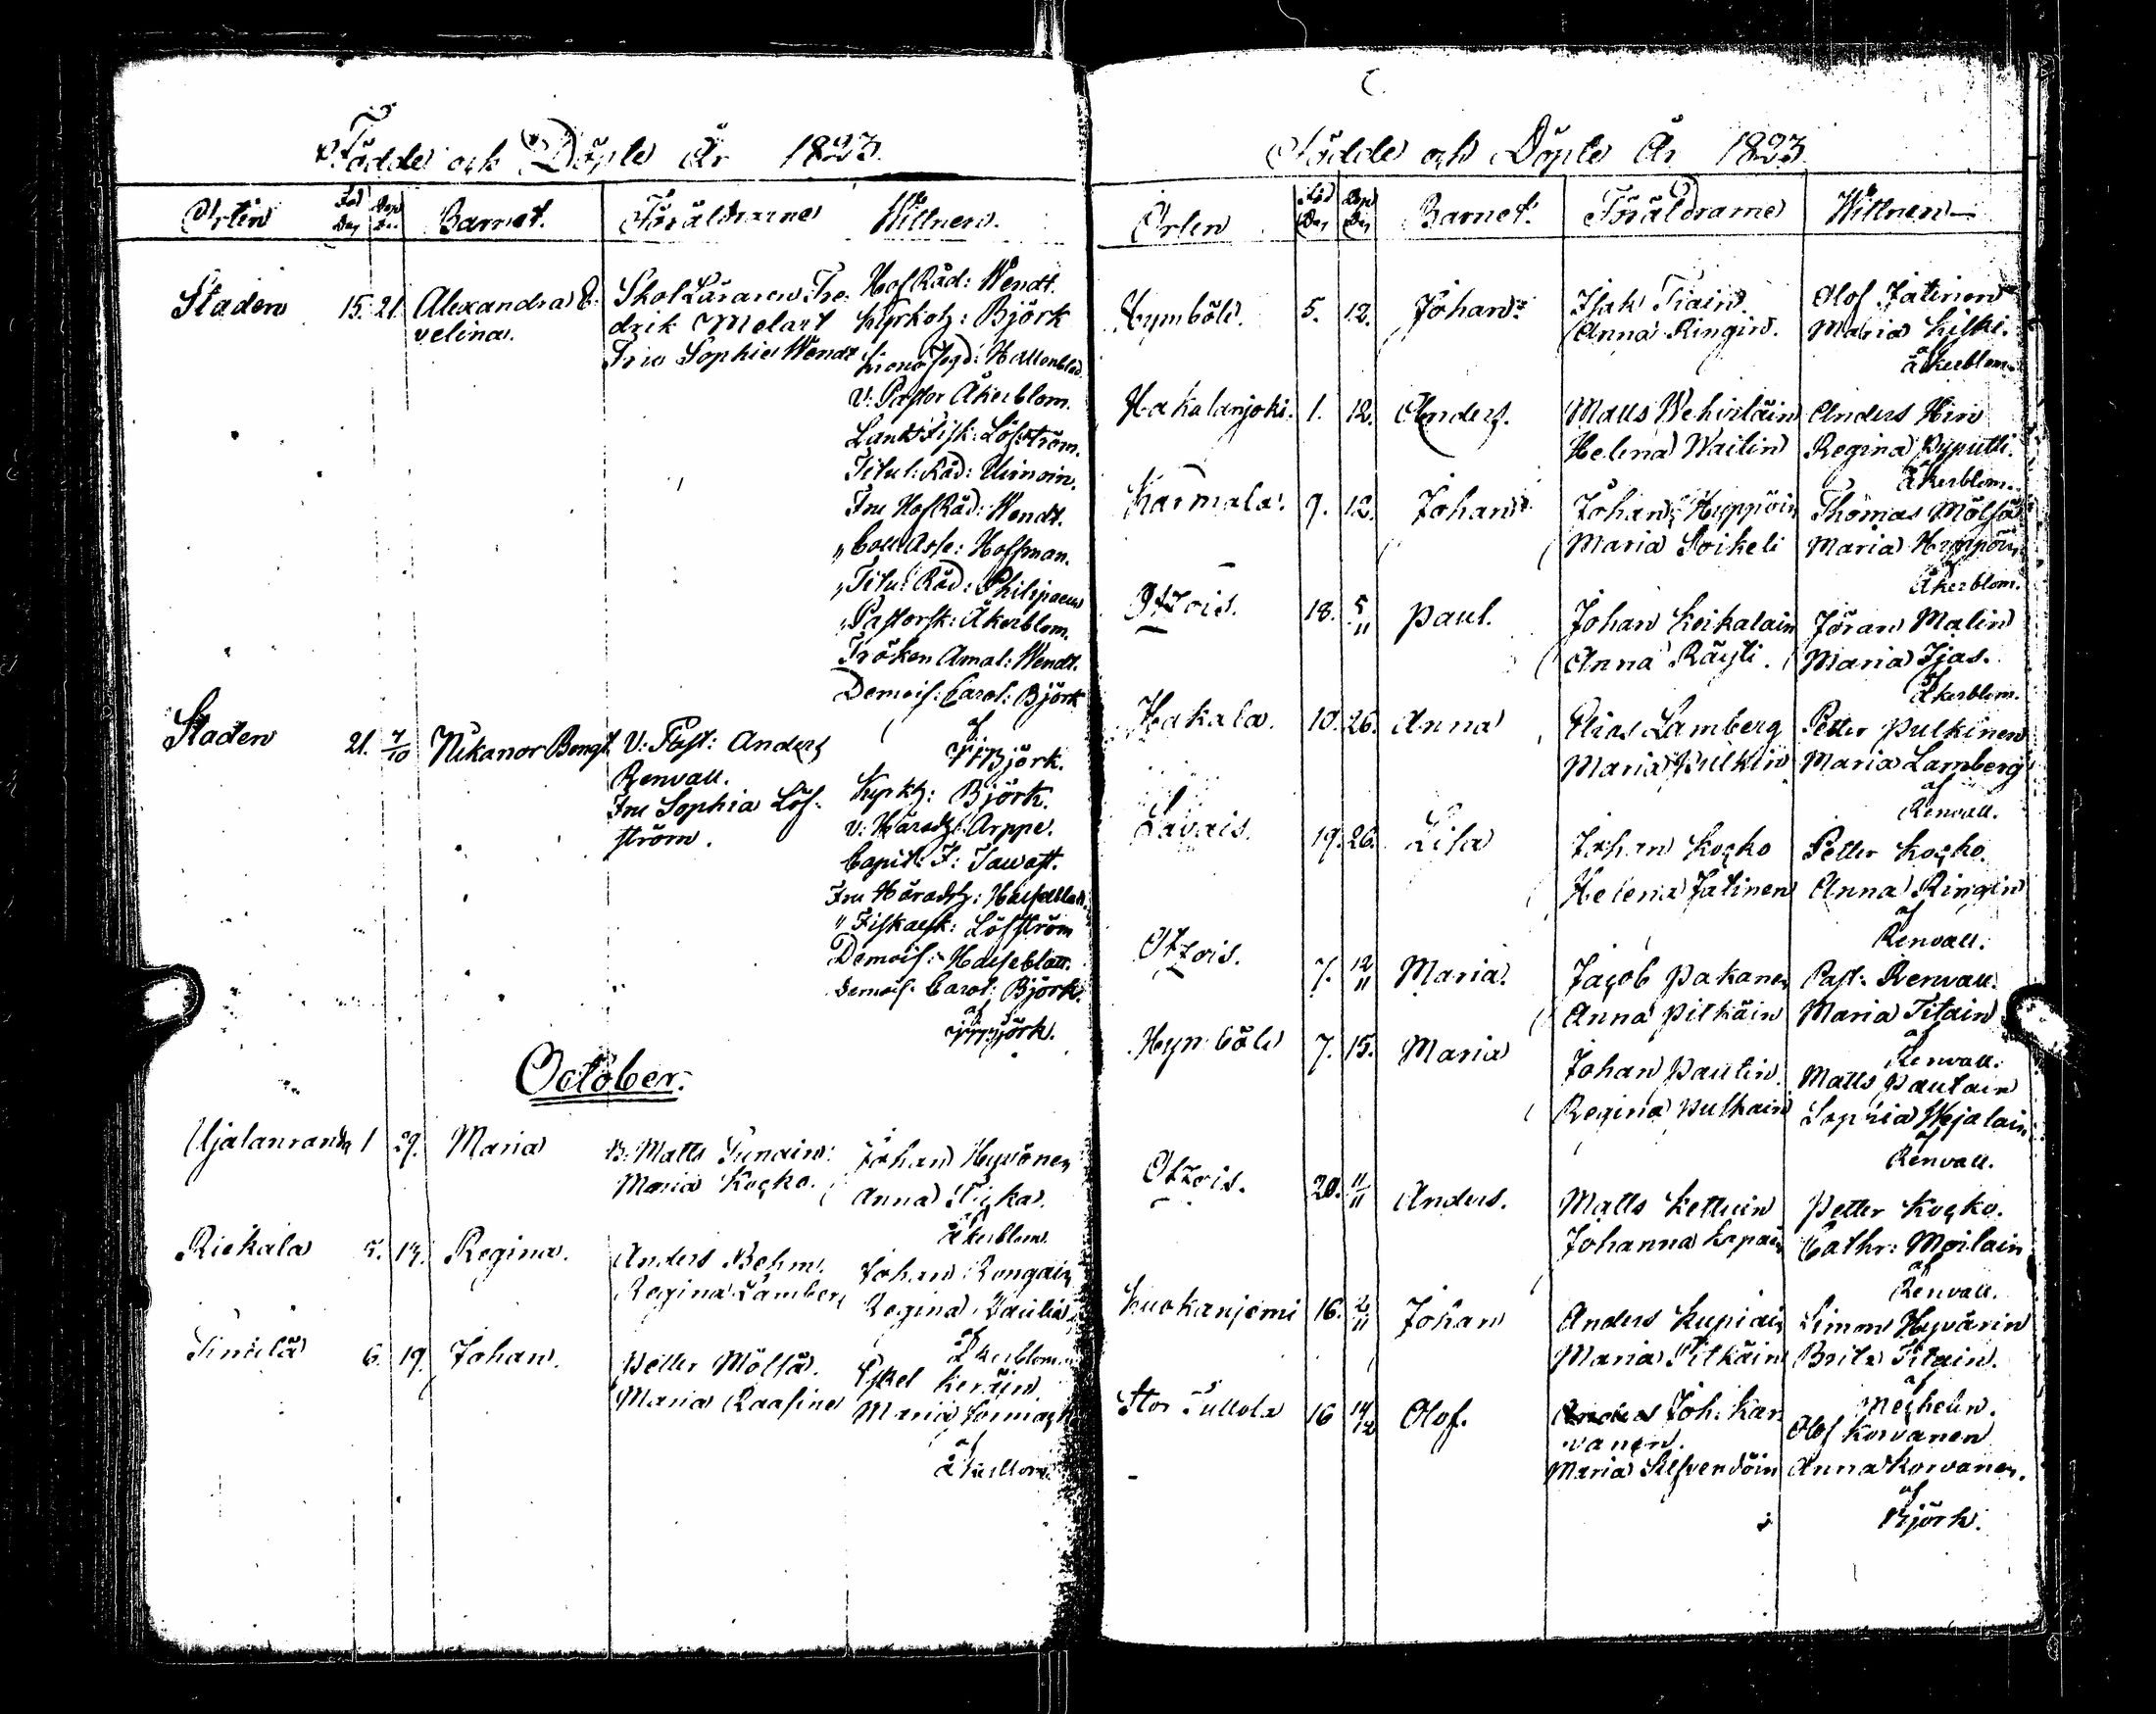 Födde och Döpte År 1823.
Orten Föd Dag Döp Da. Barnet. Föräldrarne Wittnen.
Staden 15. 21. Alexandra E-
velina.
Skol Läraren Fre-
drik Melart
Fru Sophie Wendt
Hof Råd: Wendt.
Kyrkoh: Björk
Krono Fogd: Hallonblad.
V: Pastor Åkerblom.
Lands Fisk: Löfström.
Titul: Råd:
Fru Hof Råd: Wendt.
" Coll Asse: Hoffman.
" Titul: Råd: Philipaeus
" Pastorsk: Åkerblom.
Fröken Amal: Wendt.
Demois: Carol: Björk
af
Björk.
Staden 21. 7/10 Nikanor Bengt.
V: Past: Anders
Renvall.
Fru Sophia Löf-
ström.
Kyrkh: Björk.
v: Häradsh: Arppe.
Capit: F: Tawast.
Fru Häradsh: Haeseblatt.
" Fiskalsk: Löfström
Demois: Haeseblatt.
Demois: Carol: Björk.
af
Björk.
October.
Ujalanranda 1 29. Maria
B: Matts
Maria Kocko.
Johan Hyvönen
Anna
af
Åkerblom.
Riekala 5. Regina.
Anders Behm.
Regina Lamberg
Johan Rongain
Regina Paulin
af
Åkerblom.
6. 19. Johan.
Petter Mölsä.
Maria Raasine
Eskel Keräin.
Maria
af
Åkerblom.
Födde och Döpte År 1823.
Orten Föd Dag Döp Dag Barnet. Föräldrarne Wittnen
Hymböle. 5. 12. Johan.
Isak Tiain.
Anna Ringin.
Olof Jatinen
Maria Kilski.
af
Åkerblom.
Hakalanjoki. 1. 12. Anders.
Matts Wehviläin
Helena Waitin
Anders Hirv
Regina Pyputti.
af
Åkerblom.
Karmala. 9. 12. Johan.
Johan Hyppöin
Maria Soikeli
Thomas Mölsä
Maria Hyppöin
af
Åkerblom.
Otzois. 18. 5/11 Paul.
Johan Koikalain
Anna Räysti.
Jöran Malin
Maria Ijas.
af
Åkerblom.
Hakala. 10. 26. Anna
Elias Lamberg
Maria Pulkin
Petter Pulkinen
Maria Lamberg
af
Renvall.
Lavais. 19. 26. Lisa
Johan Kocko
Helena Jatinen
Petter Kocko.
Anna Ringin
af
Renvall.
Otzois. 7. 12/11 Maria.
Jacob Pakanen
Anna Pitkäin
Past: Renvall.
Maria Titain
af
Renvall.
Hymböle 7. 15. Maria
Johan Pautin.
Regina Pulkain
Matts Pautain
Sophia Wejalain
af
Renvall.
Otzois. 20. 11/11 Anders.
Matts Kettuin
Johanna Kapain
Petter Kocko.
Cathr: Moilain
af
Renvall.
Kuokanjemi 16. 2/11 Johan
Anders Kupiain
Maria Pitkäin
Simon Hyvärin
Brita Titain.
af
Mechelin.
Stor Tullola 16 14/12 Olof.
Anders Joh: Kar-
vanen.
Maria Silfvendöin
Olof Korvanen
Anna Korvanen.
af
Björk.